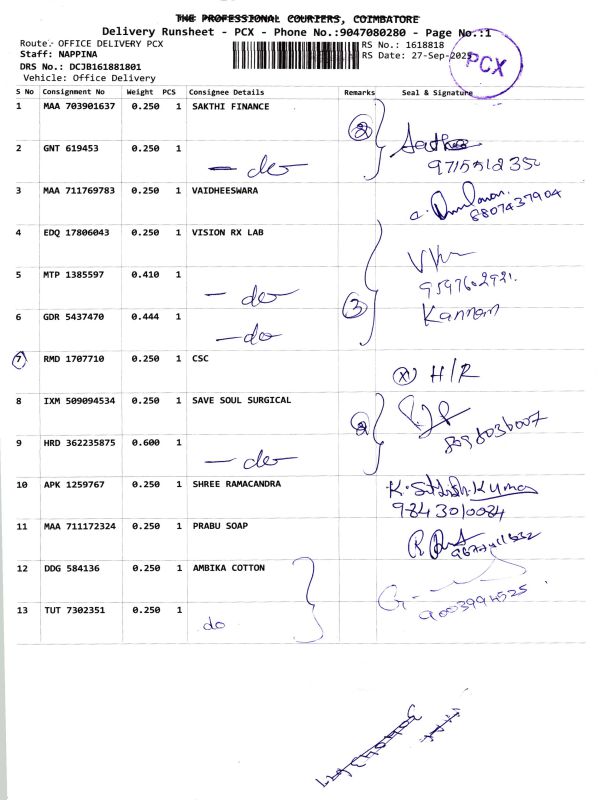 THE PROFESSIONAL COURIERS, COIMBATORE
Delivery Runsheet - PCX - Phone No.:9047080280 - Page No.:1
Route: OFFICE DELIVERY PCX
RS No.: 1618818
Staff: NAPPINA
RS Date: 27-Sep-2025
PCX
DRS No.: DCJB161881801
Vehicle: Office Delivery
S No Consignment No Weight PCS Consignee Details Remarks Seal & Signature
1 MAA 703901637 0.250 1 SAKTHI FINANCE
2
2 GNT 619453 0.250 1 - do
3 MAA 711769783 0.250 1 VAIDHEESWARA
8807437904
4 EDQ 17806043 0.250 1 VISION RX LAB
5 MTP 1385597 0.410 1 - do
3
6 GDR 5437470 0.444 1 - do
Kannan
7 RMD 1707710 0.250 1 CSC
X H/R
8 IXM 509094534 0.250 1 SAVE SOUL SURGICAL
2
9 HRD 362235875 0.600 1 - do
10 APK 1259767 0.250 1 SHREE RAMACANDRA
K. Kumar
9843010084
11 MAA 711172324 0.250 1 PRABU SOAP
12 DDG 584136 0.250 1 AMBIKA COTTON
9003994525
13 TUT 7302351 0.250 1 do